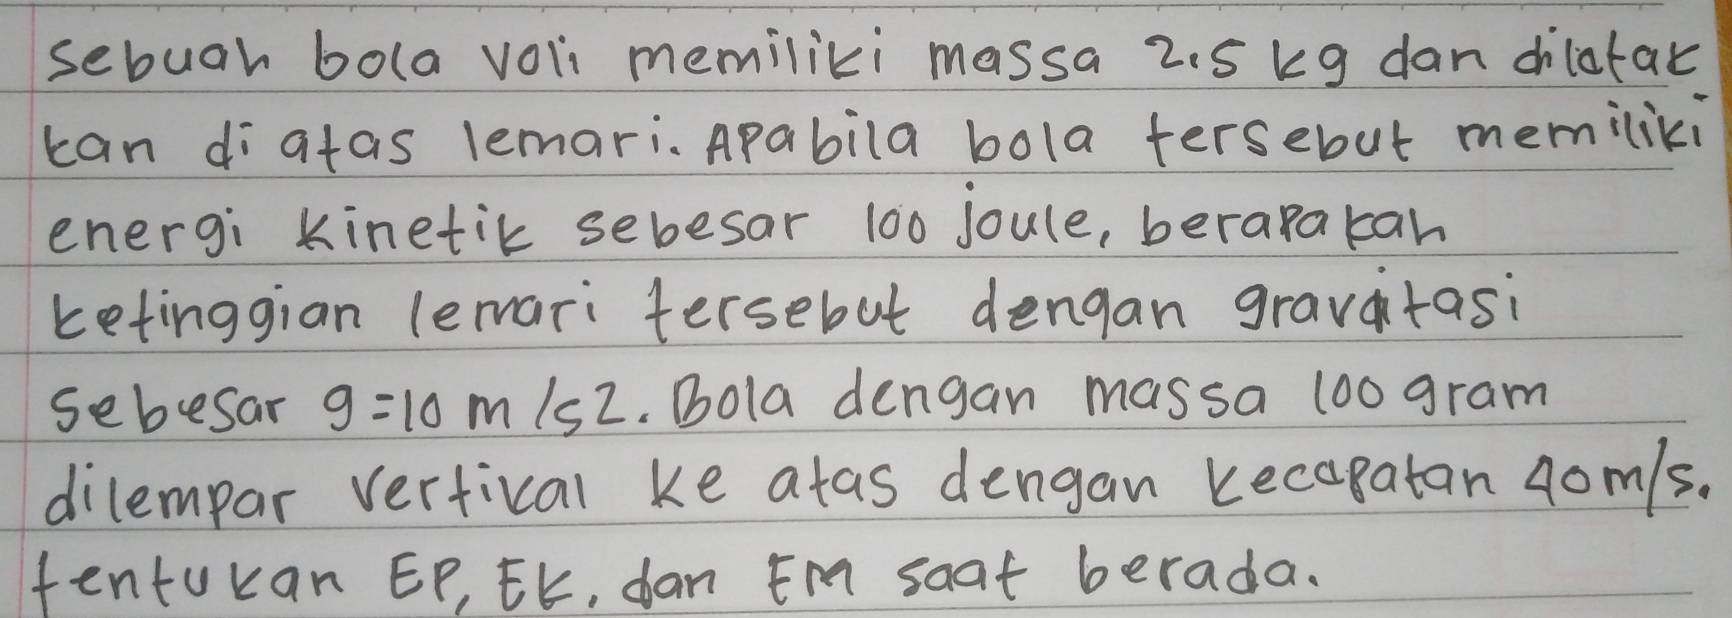 sebuah bola voli memiliki massa 2.5 kg dan dilatak
kan di atas lemari. Apabila bola tersebut memiliki
energi kinetik sebesar 100 joule, berapakah
ketinggian lemari tersebut dengan gravitasi
sebesar g=10 m/s2. Bola dengan massa 100 gram
dilempar vertikal ke atas dengan kecapatan 40m/s.
tentukan EP, EK, dan EM saat berada.